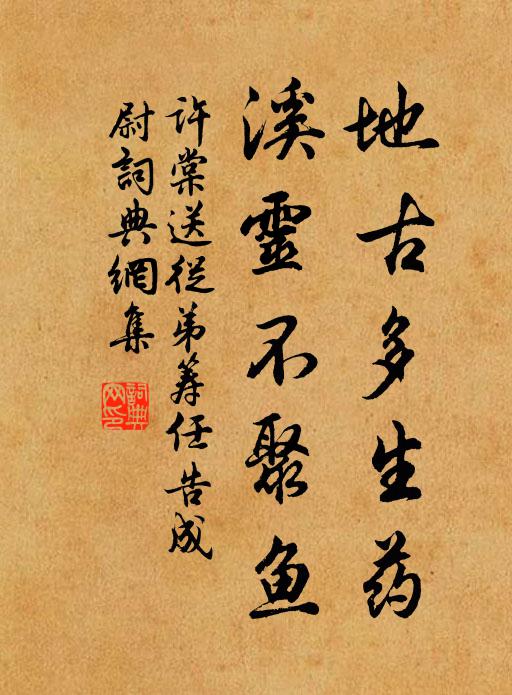 地古多生药
溪靈不聚鱼
许棠送從弟筹任告成
尉詞典網集
詞典网印